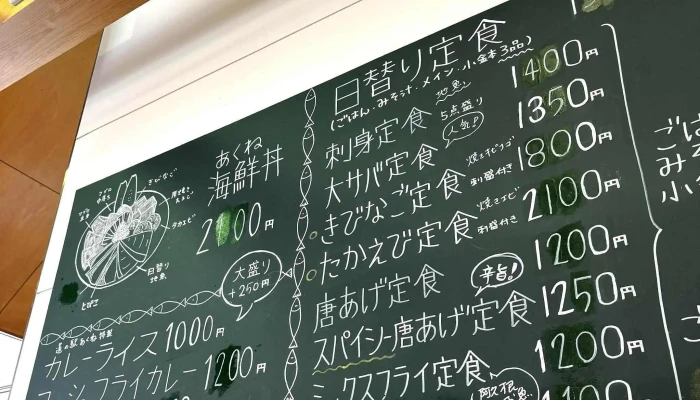 あくね
海鮮丼
2100円
大盛り
+250円
きびなご
タカエビ
日替り
地魚
道の駅あくね特製
カレーライス 1000円
フライカレー 1200円
日替り定食
(ごはん・みそ汁・メイン・小鉢3品)
刺身定食 地魚 5点盛り 1400円
大サバ定食 人気! 1350円
きびなご定食 刺身付き 1800円
たかえび定食 焼きエビ 刺身付き 2100円
唐あげ定食 1200円
スパイシー唐あげ定食 辛旨! 1250円
ミックスフライ定食 1200円
1100円
ごは
みそ
小